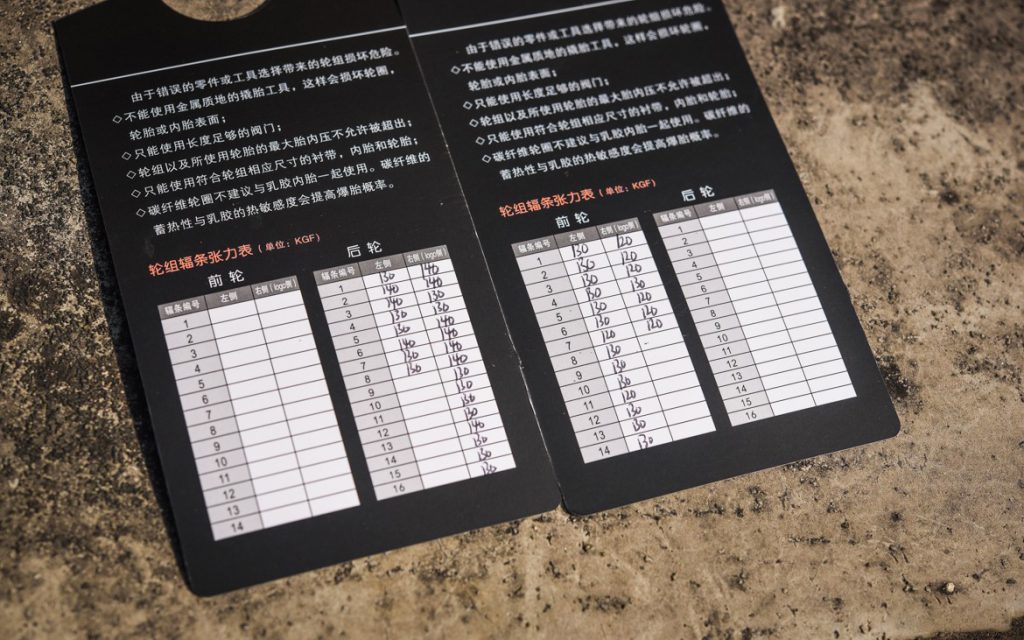 由于错误的零件或工具选择带来的轮组损坏危险。
◇不能使用金属质地的撬胎工具，这样会损坏轮圈，
轮胎或内胎表面；
◇只能使用长度足够的阀门；
◇轮组以及所使用轮胎的最大胎内压不允许被超出；
◇只能使用符合轮组相应尺寸的衬带，内胎和轮胎；
◇碳纤维轮圈不建议与乳胶内胎一起使用。碳纤维的
蓄热性与乳胶的热敏感度会提高爆胎概率。
轮组辐条张力表（单位：KGF）
前轮
辐条编号 左侧 右侧（logo侧）
1
2
3
4
5
6
7
8
9
10
11
12
13
14
后轮
辐条编号 左侧 右侧（logo侧）
1 130 140
2 140 140
3 140 130
4 130 130
5 130 140
6 140 140
7 130 140
8
9 130
10 130
11 130
12 130
13 140
14 130
15
16 130
由于错误的零件或工具选择带来的轮组损坏危险。
◇不能使用金属质地的撬胎工具，这样会损坏轮圈，
轮胎或内胎表面；
◇只能使用长度足够的阀门；
◇轮组以及所使用轮胎的最大胎内压不允许被超出；
◇只能使用符合轮组相应尺寸的衬带，内胎和轮胎；
◇碳纤维轮圈不建议与乳胶内胎一起使用。碳纤维的
蓄热性与乳胶的热敏感度会提高爆胎概率。
轮组辐条张力表（单位：KGF）
前轮
辐条编号 左侧 右侧（logo侧）
1 130 120
2 130 120
3 130 120
4 130 130
5 130 120
6 130 120
7 120 120
8 130
9 130
10 130
11 120
12 130
13 130
14 130
后轮
辐条编号 左侧 右侧（logo侧）
1
2
3
4
5
6
7
8
9
10
11
12
13
14
15
16